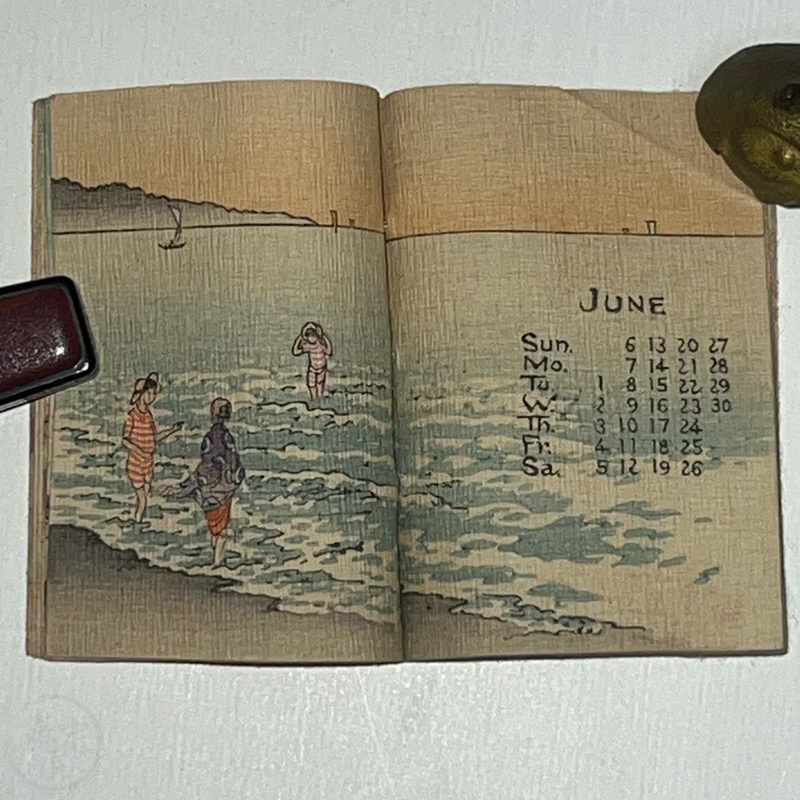 JUNE
Sun. 6 13 20 27
Mo. 7 14 21 28
Tu. 1 8 15 22 29
W. 2 9 16 23 30
Th. 3 10 17 24
Fr. 4 11 18 25
Sa. 5 12 19 26